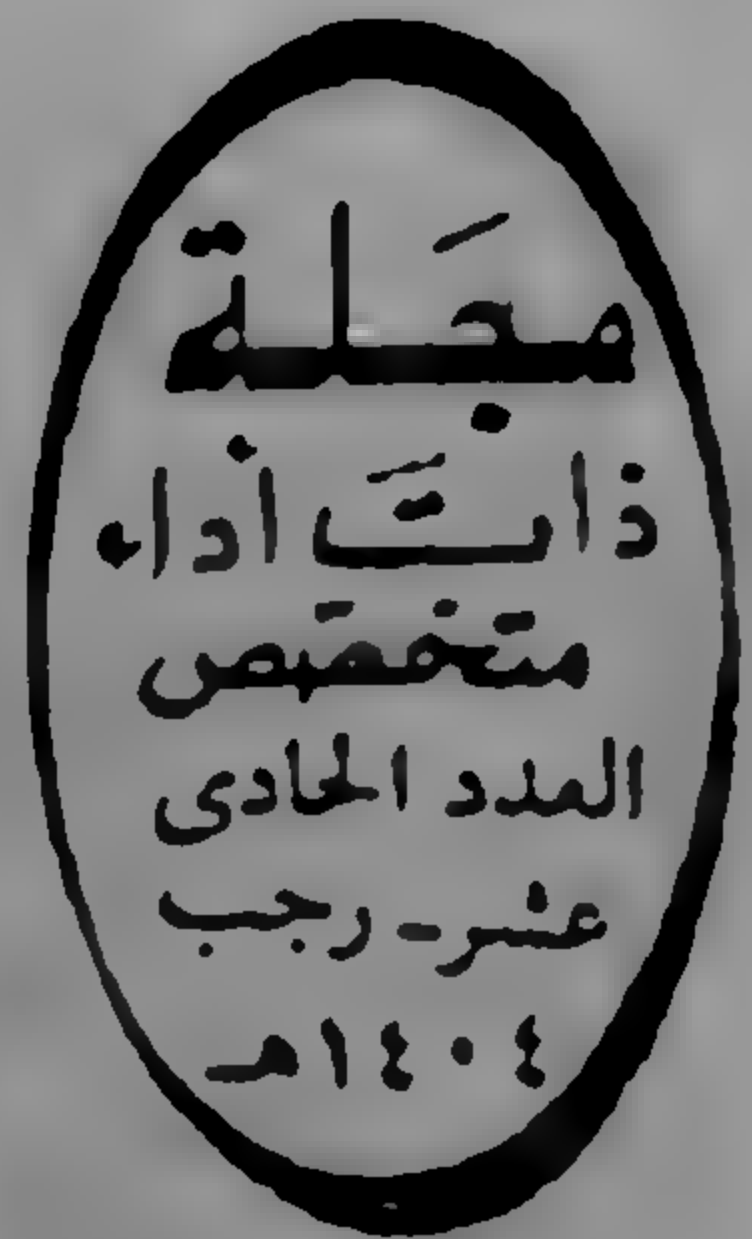 مجَلة
ذات أداء
متخصص
العدد الحادى
عشر - رجب
١٤٠٤هـ